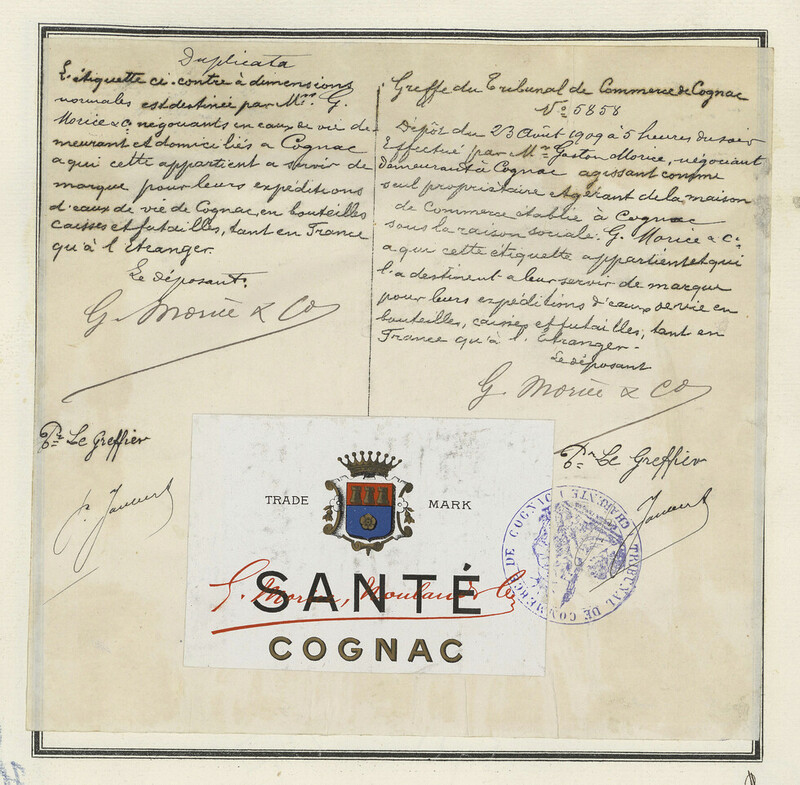 Duplicata
L'étiquette ci contre à dimensions
normales est destinée par Mrs. G.
Morice & Co négociants en eaux de vie de-
meurant et domiciliés à Cognac
a qui cette appartient a servir de
marque pour leurs expéditions
d'eaux de vie de Cognac, en bouteilles
caisses et futailles, tant en France
qu'à l'Étranger.
Le déposant.
G. Morice & Co
Pr Le Greffier
Greffe du Tribunal de Commerce de Cognac
No 5858
Dépôt du 23 Août 1909 à 5 heures du soir
Effectué par Mr Gaston Morice, négociant
demeurant à Cognac agissant comme
seul propriétaire et gérant de la maison
de Commerce établie à Cognac
sous la raison sociale. G. Morice & Co
a qui cette étiquette appartient et qui
l'a destinent a leur servir de marque
pour leurs expéditions d'eaux de vie en
bouteilles, caisses et futailles, tant en
France qu'à l'Étranger.-
Le déposant
G. Morice & Co
Pr Le Greffier
TRADE MARK
SANTÉ
G. Morice,
COGNAC
TRIBUNAL DE COMMERCE DE COGNAC
CHARENTE